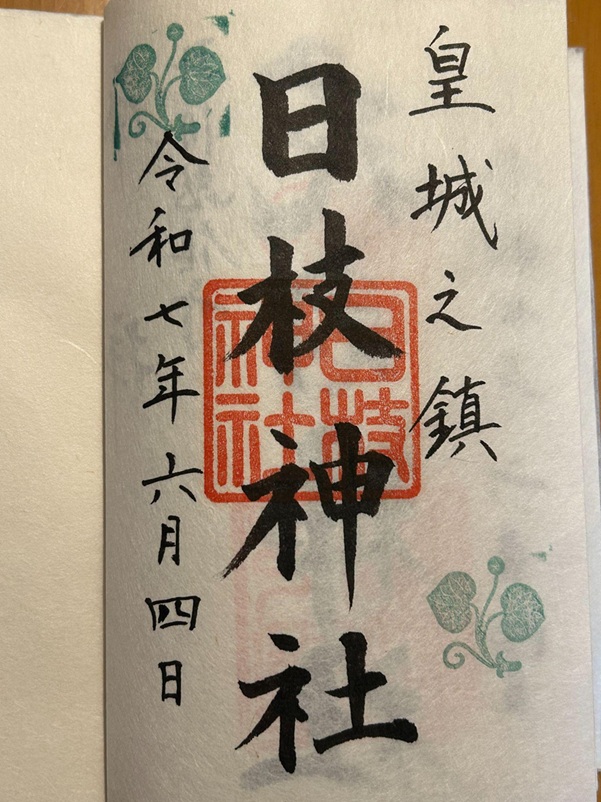 皇城之鎮
日枝神社
日枝神社
令和七年六月四日